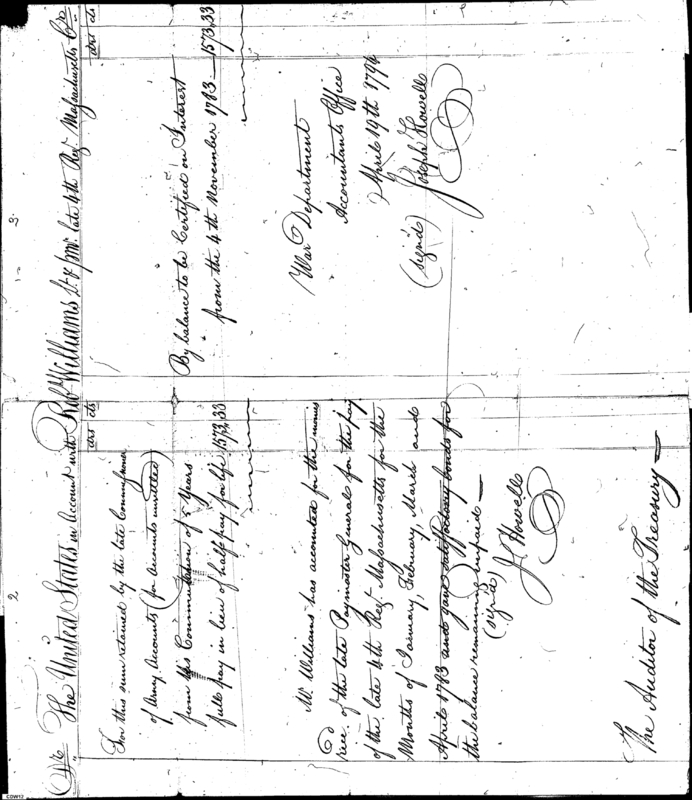 2
3
Dr. The United States in Account with Robt. Williams Lt. & p.mr. late 4th Regt. Massachusetts Cr.
drs cts
For this sum retained by the late Commissioner
of Army Accounts (for Accounts unsettled)
from his Commutation of 5 Years
full pay in lieu of half pay for life 1573,33
Mr. Williams has accounted for the monies
recd. of the late Paymaster General for the pay
of the late 4th Regt. Massachusetts for the
Months of January, February, March and
April 1783 and gave satisfactory bonds for
the balance remaining unpaid
(signed)
J. Howell
The Auditor of the Treasury
drs cts
By balance to be Certified on Interest
from the 4th November 1783 1573,33
War Department
Accountants Office
April 19th 1794
(signed) Joseph Howell
CDW12